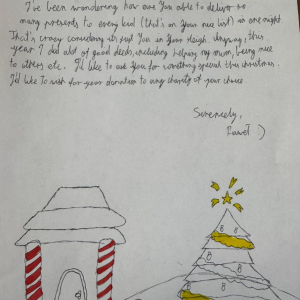 I've been wondering how are you able to deliver so
many presents to every kid (that's on your nice list) in one night.
That's crazy considering it's just you in your sleigh. Anyway, this
year I did alot of good deeds, including helping my mum, being nice
to others etc. I'd like to ask you for something special this christmas.
I'd like to wish for your donation to any charity of your choice
Sincerely,
Pawel :)